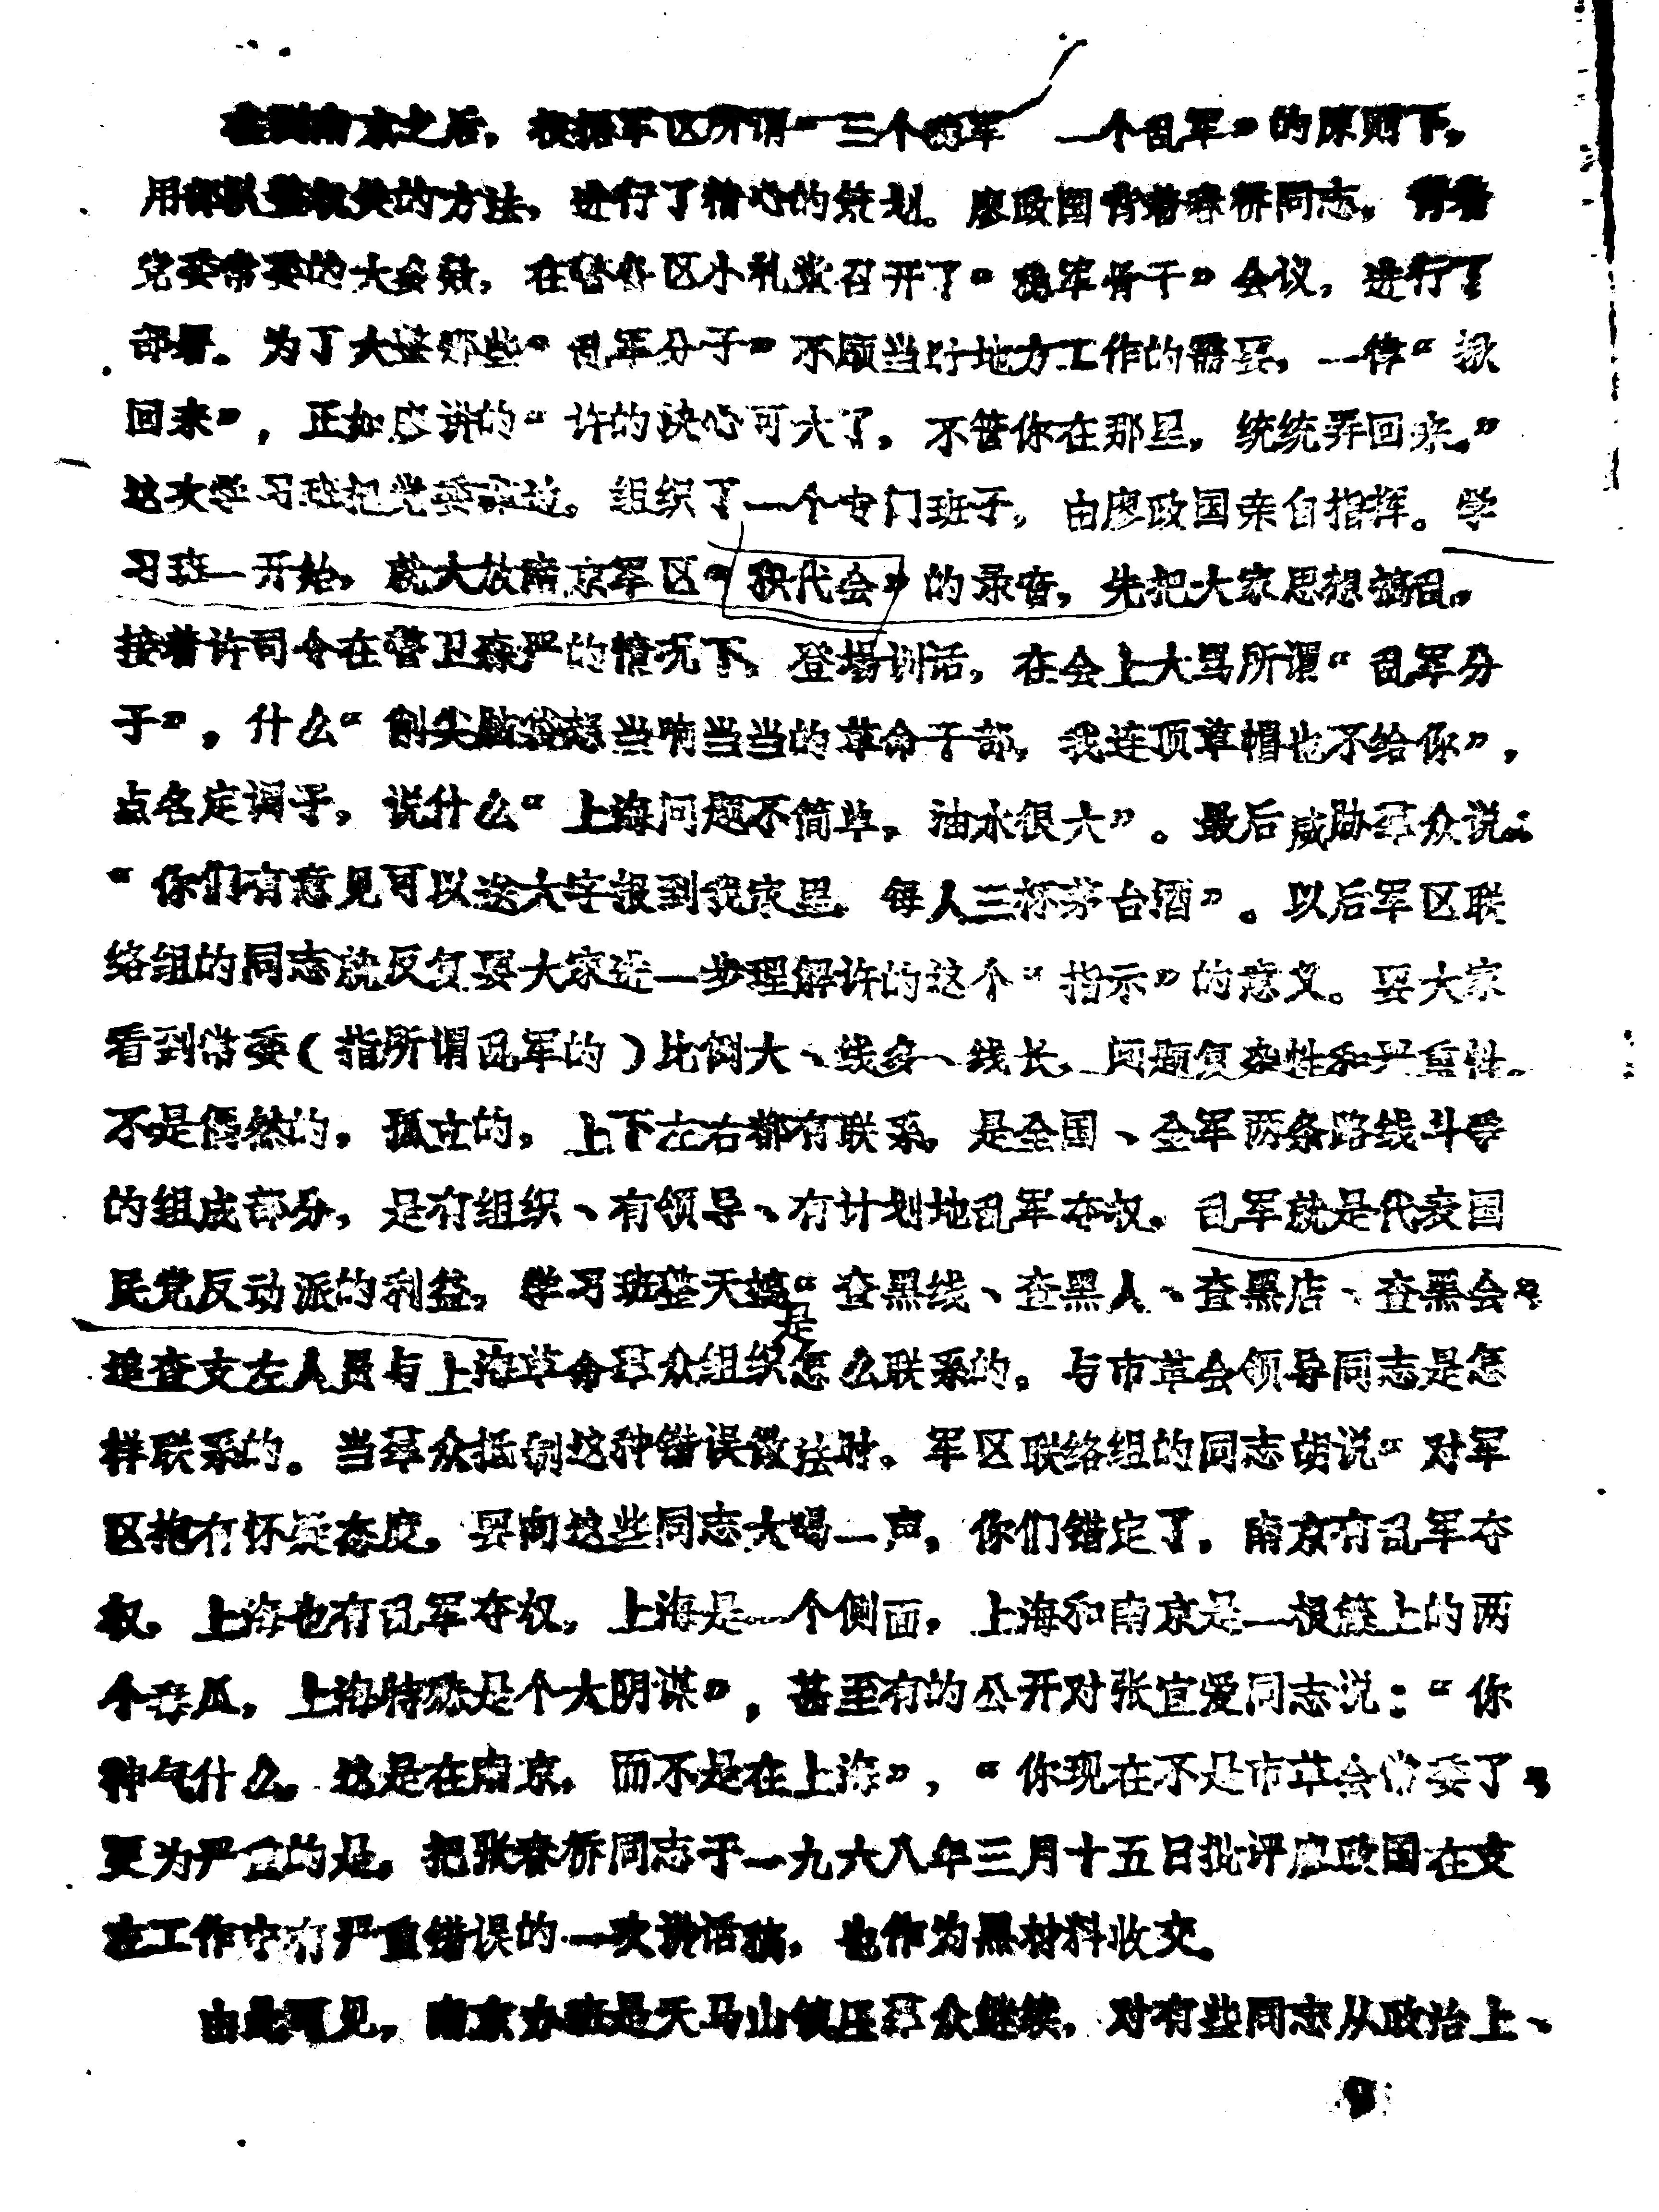 在到南京之后，根据军区所谓“三个揭军 一个乱军”的原则下，
用部队整机关的方法，进行了精心的筹划。廖政国背着春桥同志，背着
党委常委的大会数，在警备区小礼堂召开了“揭军骨干”会议，进行了
部署。为了大整那些“乱军分子”不顾当时地方工作的需要，一律“揪
回来”，正如廖讲的“许的决心可大了，不管你在那里，统统弄回来。”
这次学习班把党委靠边。组织了一个专门班子，由廖政国亲自指挥。学
习班一开始，就大放南京军区“积代会”的录音，先把大家思想搞乱，
接着许司令在警卫森严的情况下，登场训话，在会上大骂所谓“乱军分
子”，什么“削尖脑袋想当响当当的革命干部，我连顶草帽也不给你”，
点名定调子，说什么“上海问题不简单，油水很大”。最后威胁群众说：
“你们有意见可以送大字报到我家里，每人三杯茅台酒”。以后军区联
络组的同志就反复要大家进一步理解许的这个“指示”的意义。要大家
看到常委（指所谓乱军的）比例大、线多、线长，问题复杂性和严重性。
不是偶然的，孤立的，上下左右都有联系，是全国、全军两条路线斗争
的组成部分，是有组织、有领导、有计划地乱军夺权。乱军就是代表国
民党反动派的利益，学习班整天搞“查黑线、查黑人、查黑店、查黑会”
追查支左人员与上海革命群众组织是怎么联系的。与市革会领导同志是怎
样联系的。当群众抵制这种错误做法时，军区联络组的同志胡说“对军
区抱有怀疑态度，要向这些同志大喝一声，你们错定了，南京有乱军夺
权，上海也有乱军夺权，上海是一个侧面，上海和南京是一根藤上的两
个毒瓜，上海特殊是个大阴谋”，甚至有的公开对张宜爱同志说：“你
神气什么，这是在南京，而不是在上海”，“你现在不是市革会常委了”
更为严重的是，把张春桥同志于一九六八年三月十五日批评廖政国在支
左工作中有严重错误的一次讲话稿，也作为黑材料收交。
由此可见，南京办班是天马山镇压群众继续，对有些同志从政治上、